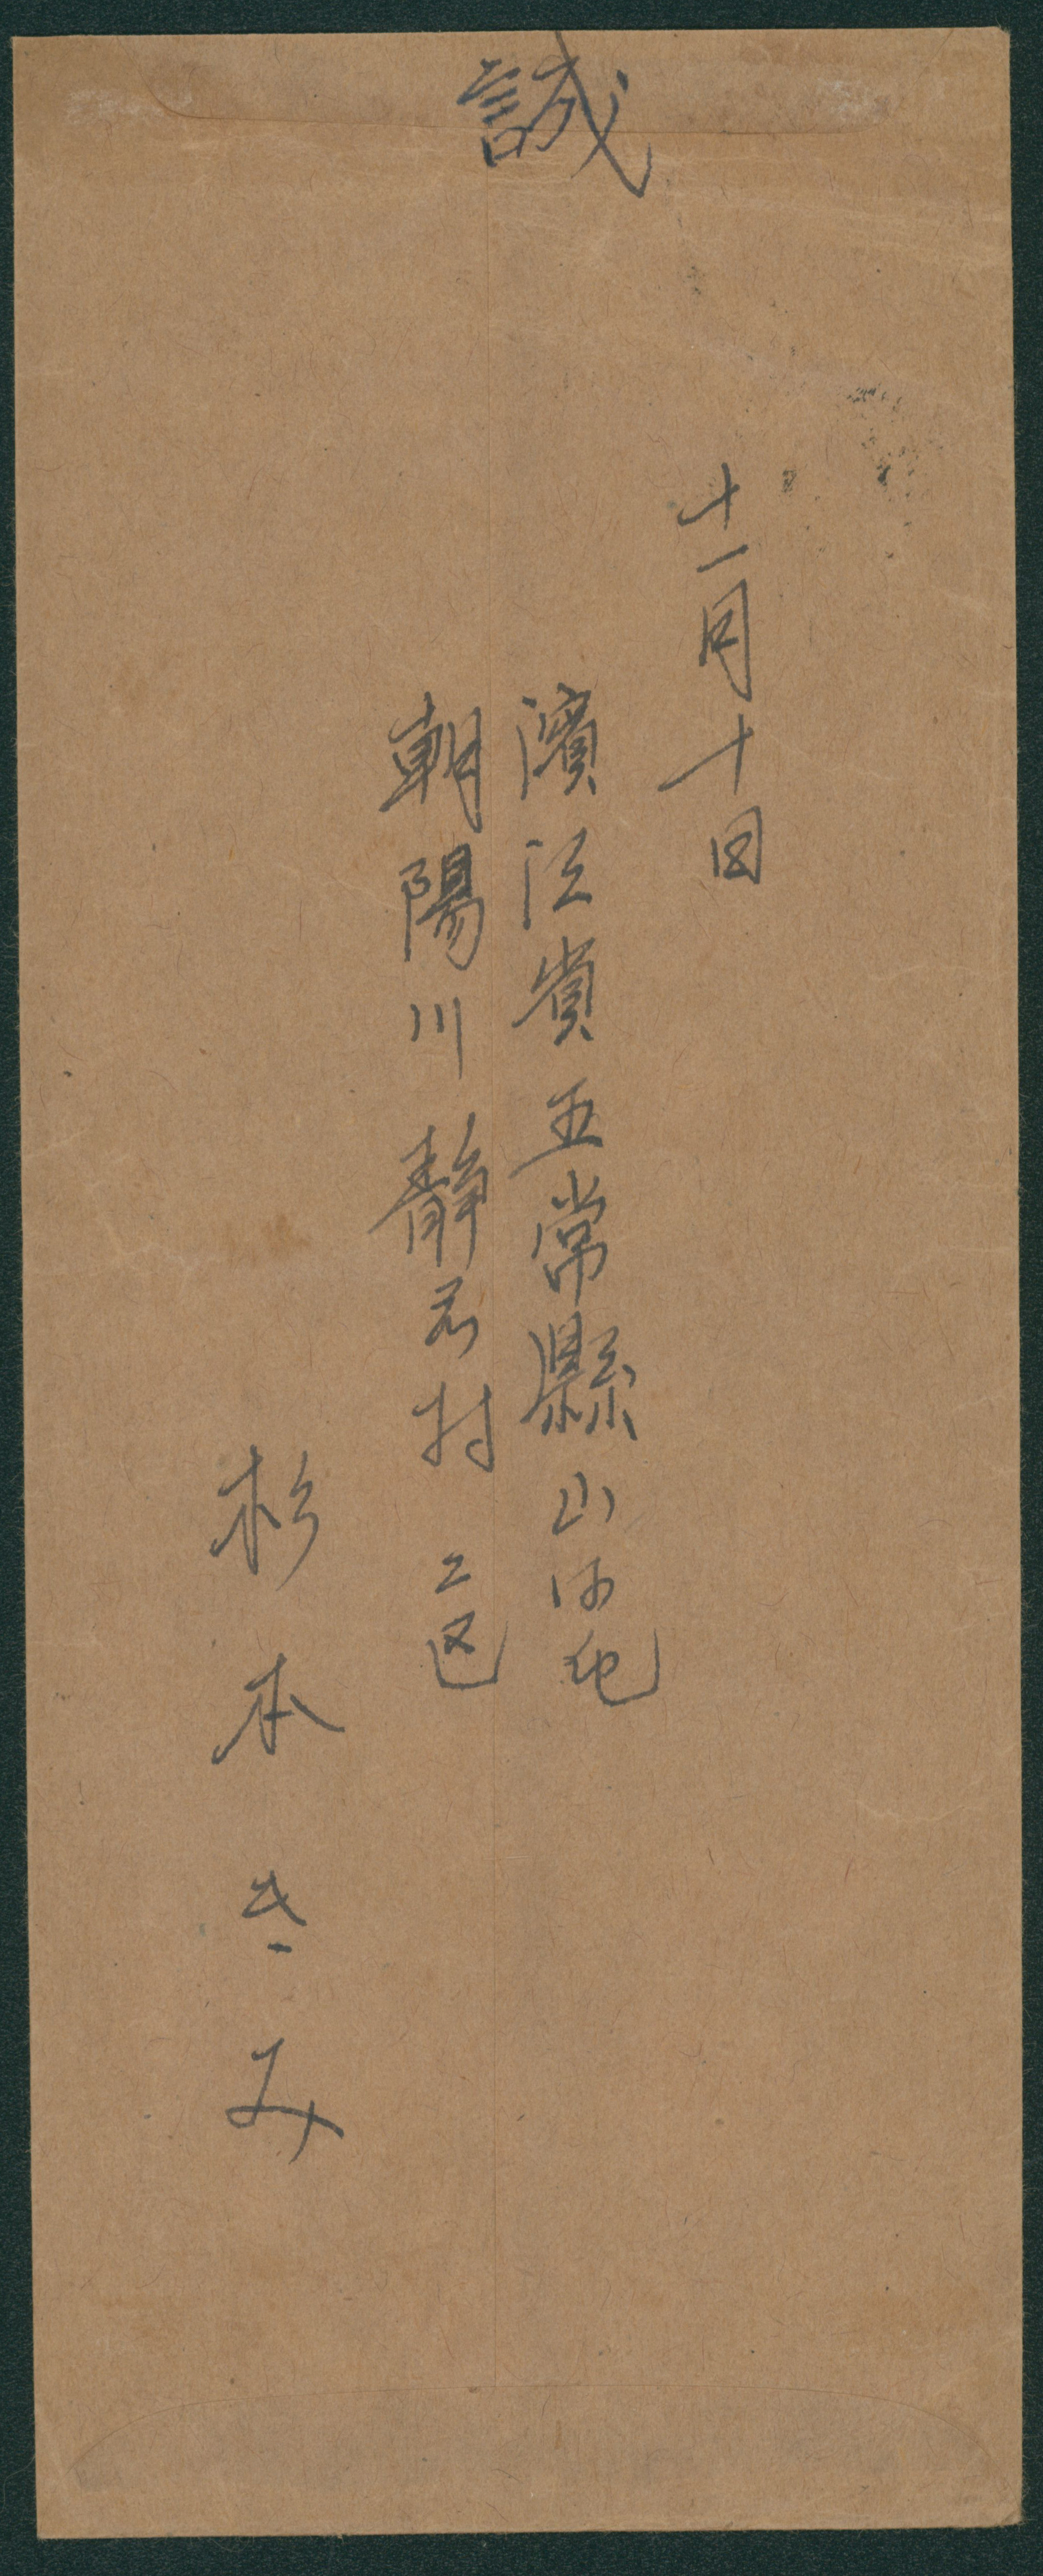 誠
十一月十日
濱江省五常縣山河屯
朝陽川 静村 二区
杉本きみ